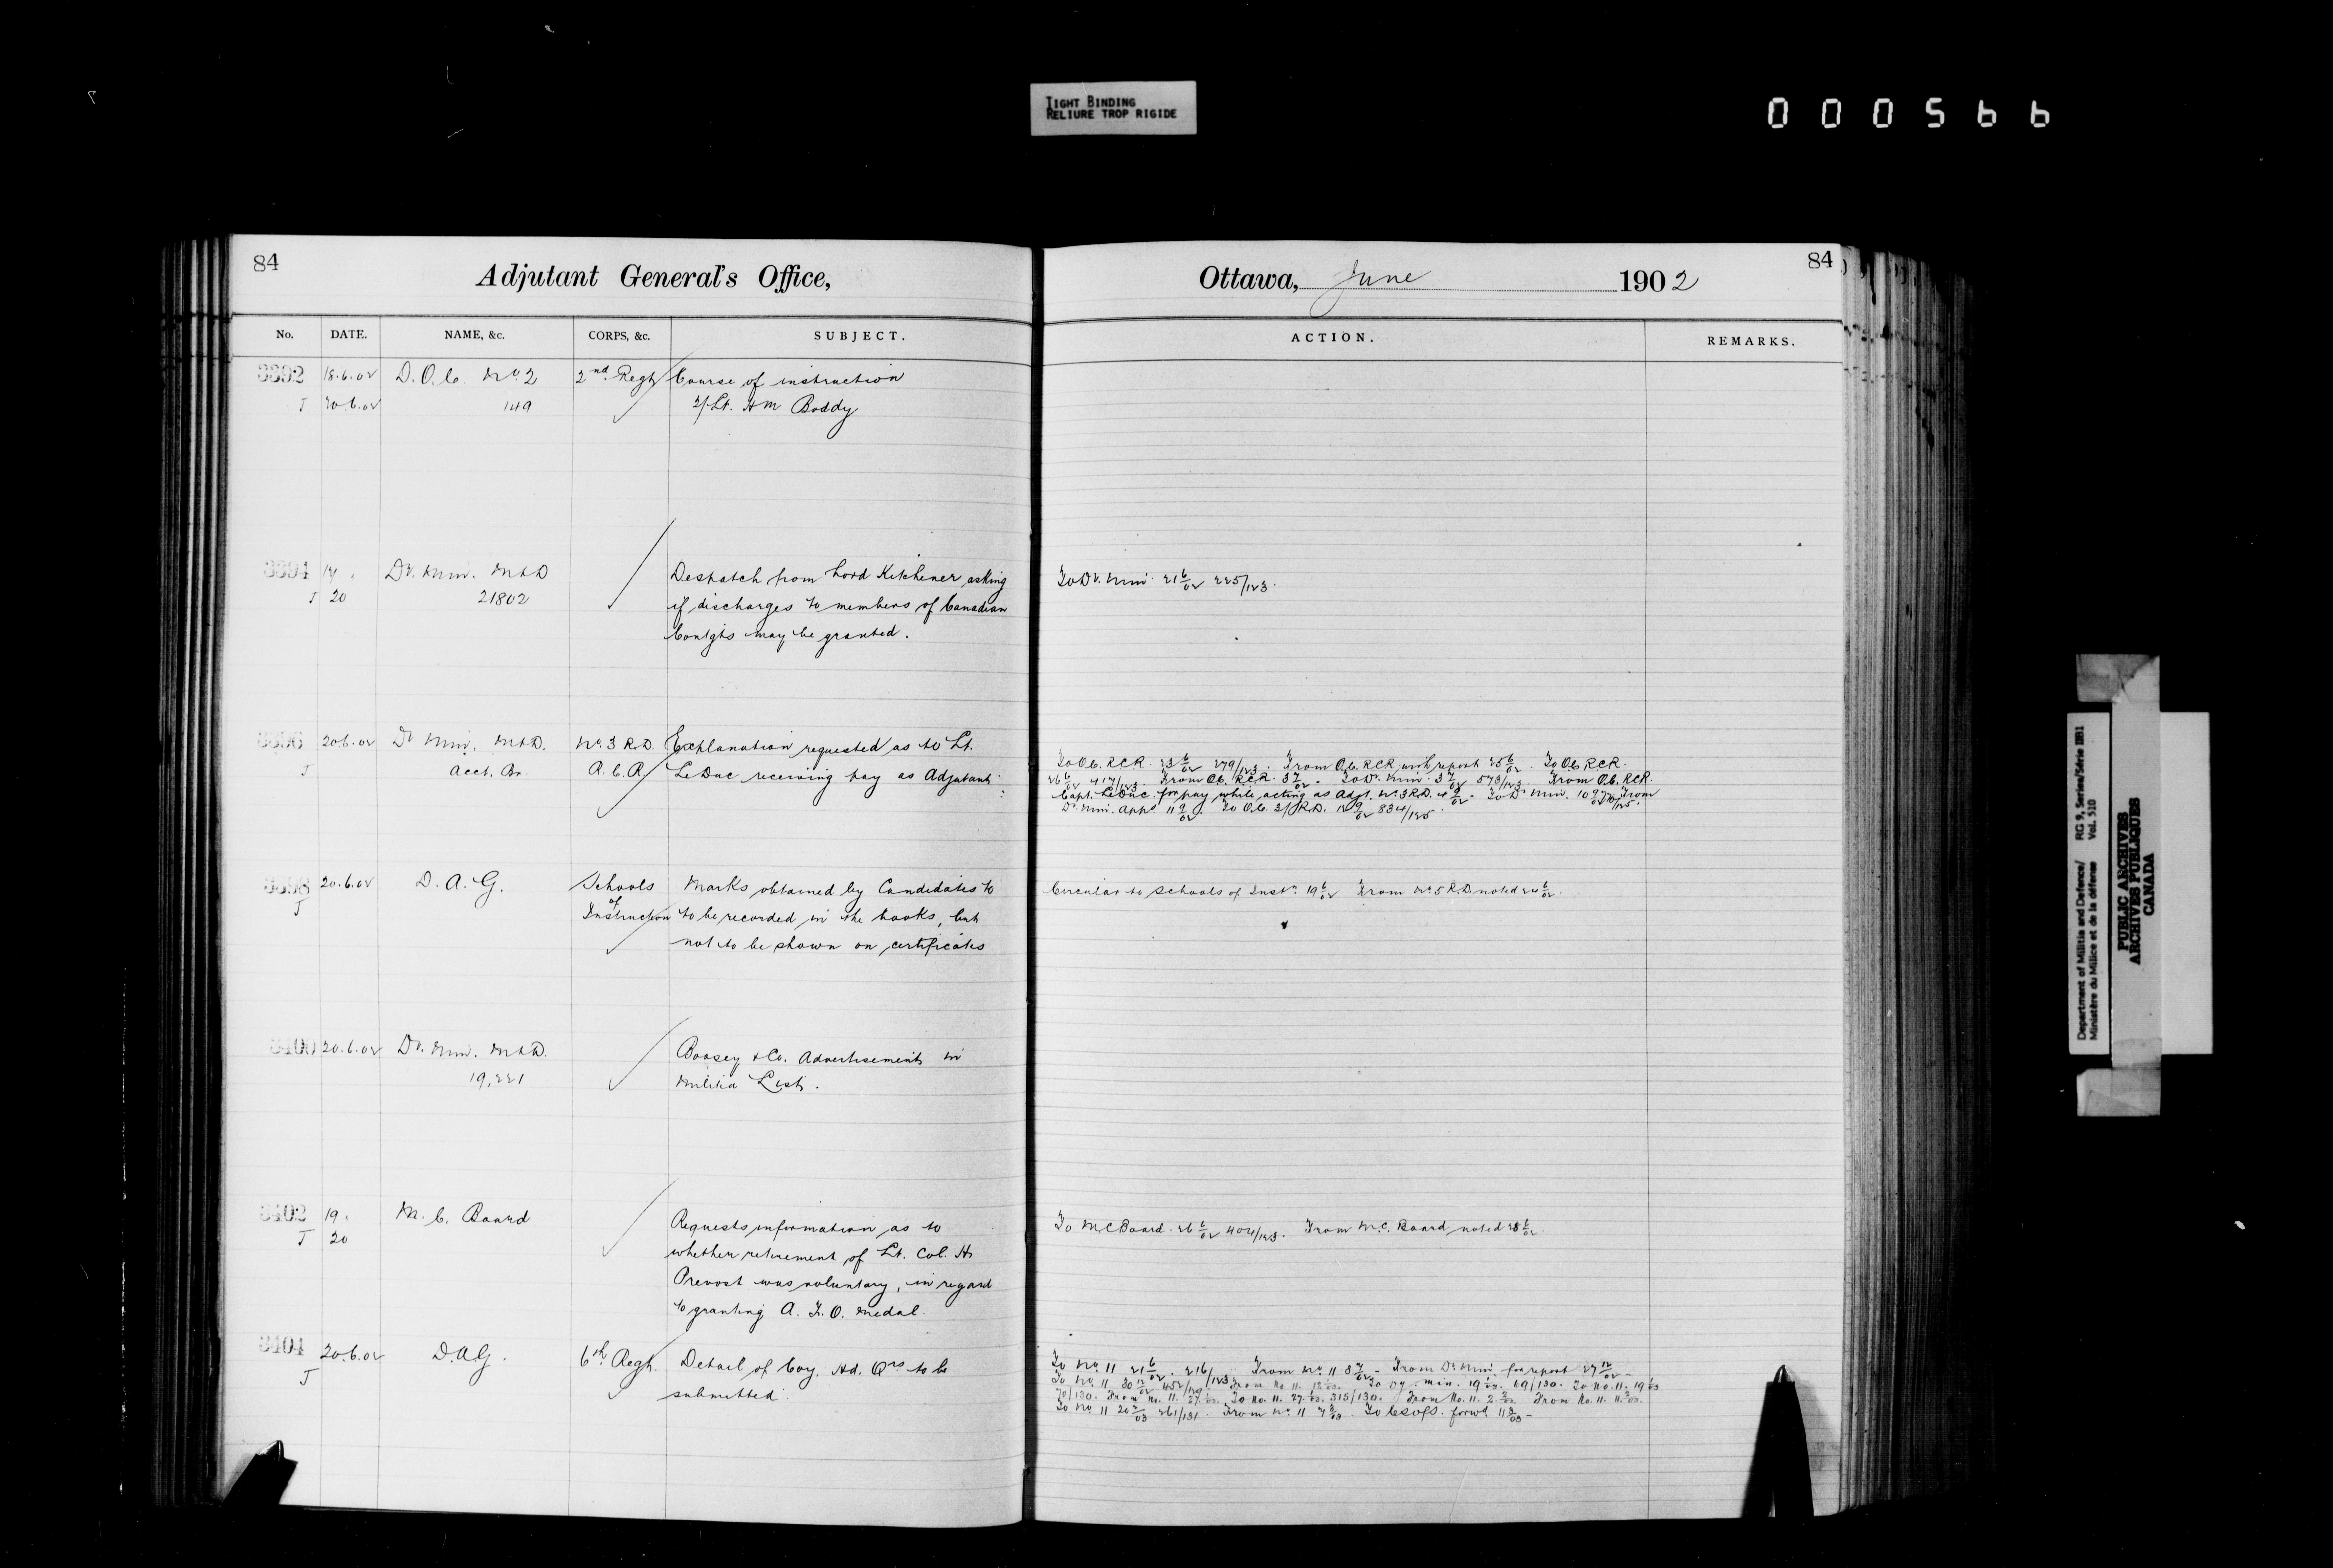 TIGHT BINDING
RELIURE TROP RIGIDE
000566
84
Adjutant General's Office,
No. DATE. NAME, &c. CORPS, &c. SUBJECT.
3392 18.6.02 D.O.C. No. 2 2nd Regt Course of instruction
J 20.6.02 149 2/Lt. HM Boddy
3394 17 Dy. Min. M&D Despatch from Lord Kitchener asking
J 20 21802 if discharges to members of Canadian
Contgts may be granted.
3396 20.6.02 Dy Min. M&D. No. 3 R.D. Explanation requested as to Lt.
J Acct. Br. R.C.R. LeDuc receiving pay as Adjutant
3398 20.6.02 D.A.G. Schools Marks obtained by Candidates to
J of
Instruction to be recorded in the books, but
not to be shown on certificates
3400 20.6.02 Dy. Min. M&D. Boosey & Co. Advertisement in
19,221 Militia List.
3402 19 M.C. Board Requests information as to
J 20 whether retirement of Lt. Col. H
Prevost was voluntary, in regard
to granting A.F.O. medal.
3404 20.6.02 D.A.G. 6th Regt. Detail of Coy. Hd. Qrs to be
J submitted.
84
Ottawa, June 1902
ACTION. REMARKS.
To Dy. Min. 21 6/02 225/123.
To O.C. RCR. 23 6/02 279/123. From O.C. RCR with report 25 6/02. To O.C. RCR.
26 6/02 417/123. From O.C. RCR. 3 7/02. To Dy. Min. 3 7/02 573/123. From O.C. RCR.
Capt. LeDuc. for pay while acting as Adjt. No. 3 R.D. 4 9/02. To Dy Min. 10 9/02 From
Dy. Min. App. 11 9/02. To O.C. 3/R.D. 12 9/02 834/125.
Circular to Schools of Instn. 19 6/02 From No. 5 R.D. noted 24 6/02.
To M.C Board. 26 6/02 404/123. From M.C. Board noted 28 6/02.
To No. 11 21 6/02. 216/123 From No. 11 3 7/02 - From Dy. Min. for report 27 12/02 -
To No. 11 30 12/02 452/129. From No. 11. To Dy. Min. 19 1/03. 69/130. To No. 11. 19 1/03
70/130. From No. 11. 27 1/03. To No. 11. 27 1/03. 315/130. From No. 11. 2 2/03 From No. 11. 11 2/03.
To No. 11 20 2/03 261/131. From No. 11 7 3/03. To forwd. 11 3/03 -
Department of Militia and Defence/ RG 9, Series/Série IIB1
Ministère du Milice et de la défense Vol. 510
PUBLIC ARCHIVES
ARCHIVES PUBLIQUES
CANADA